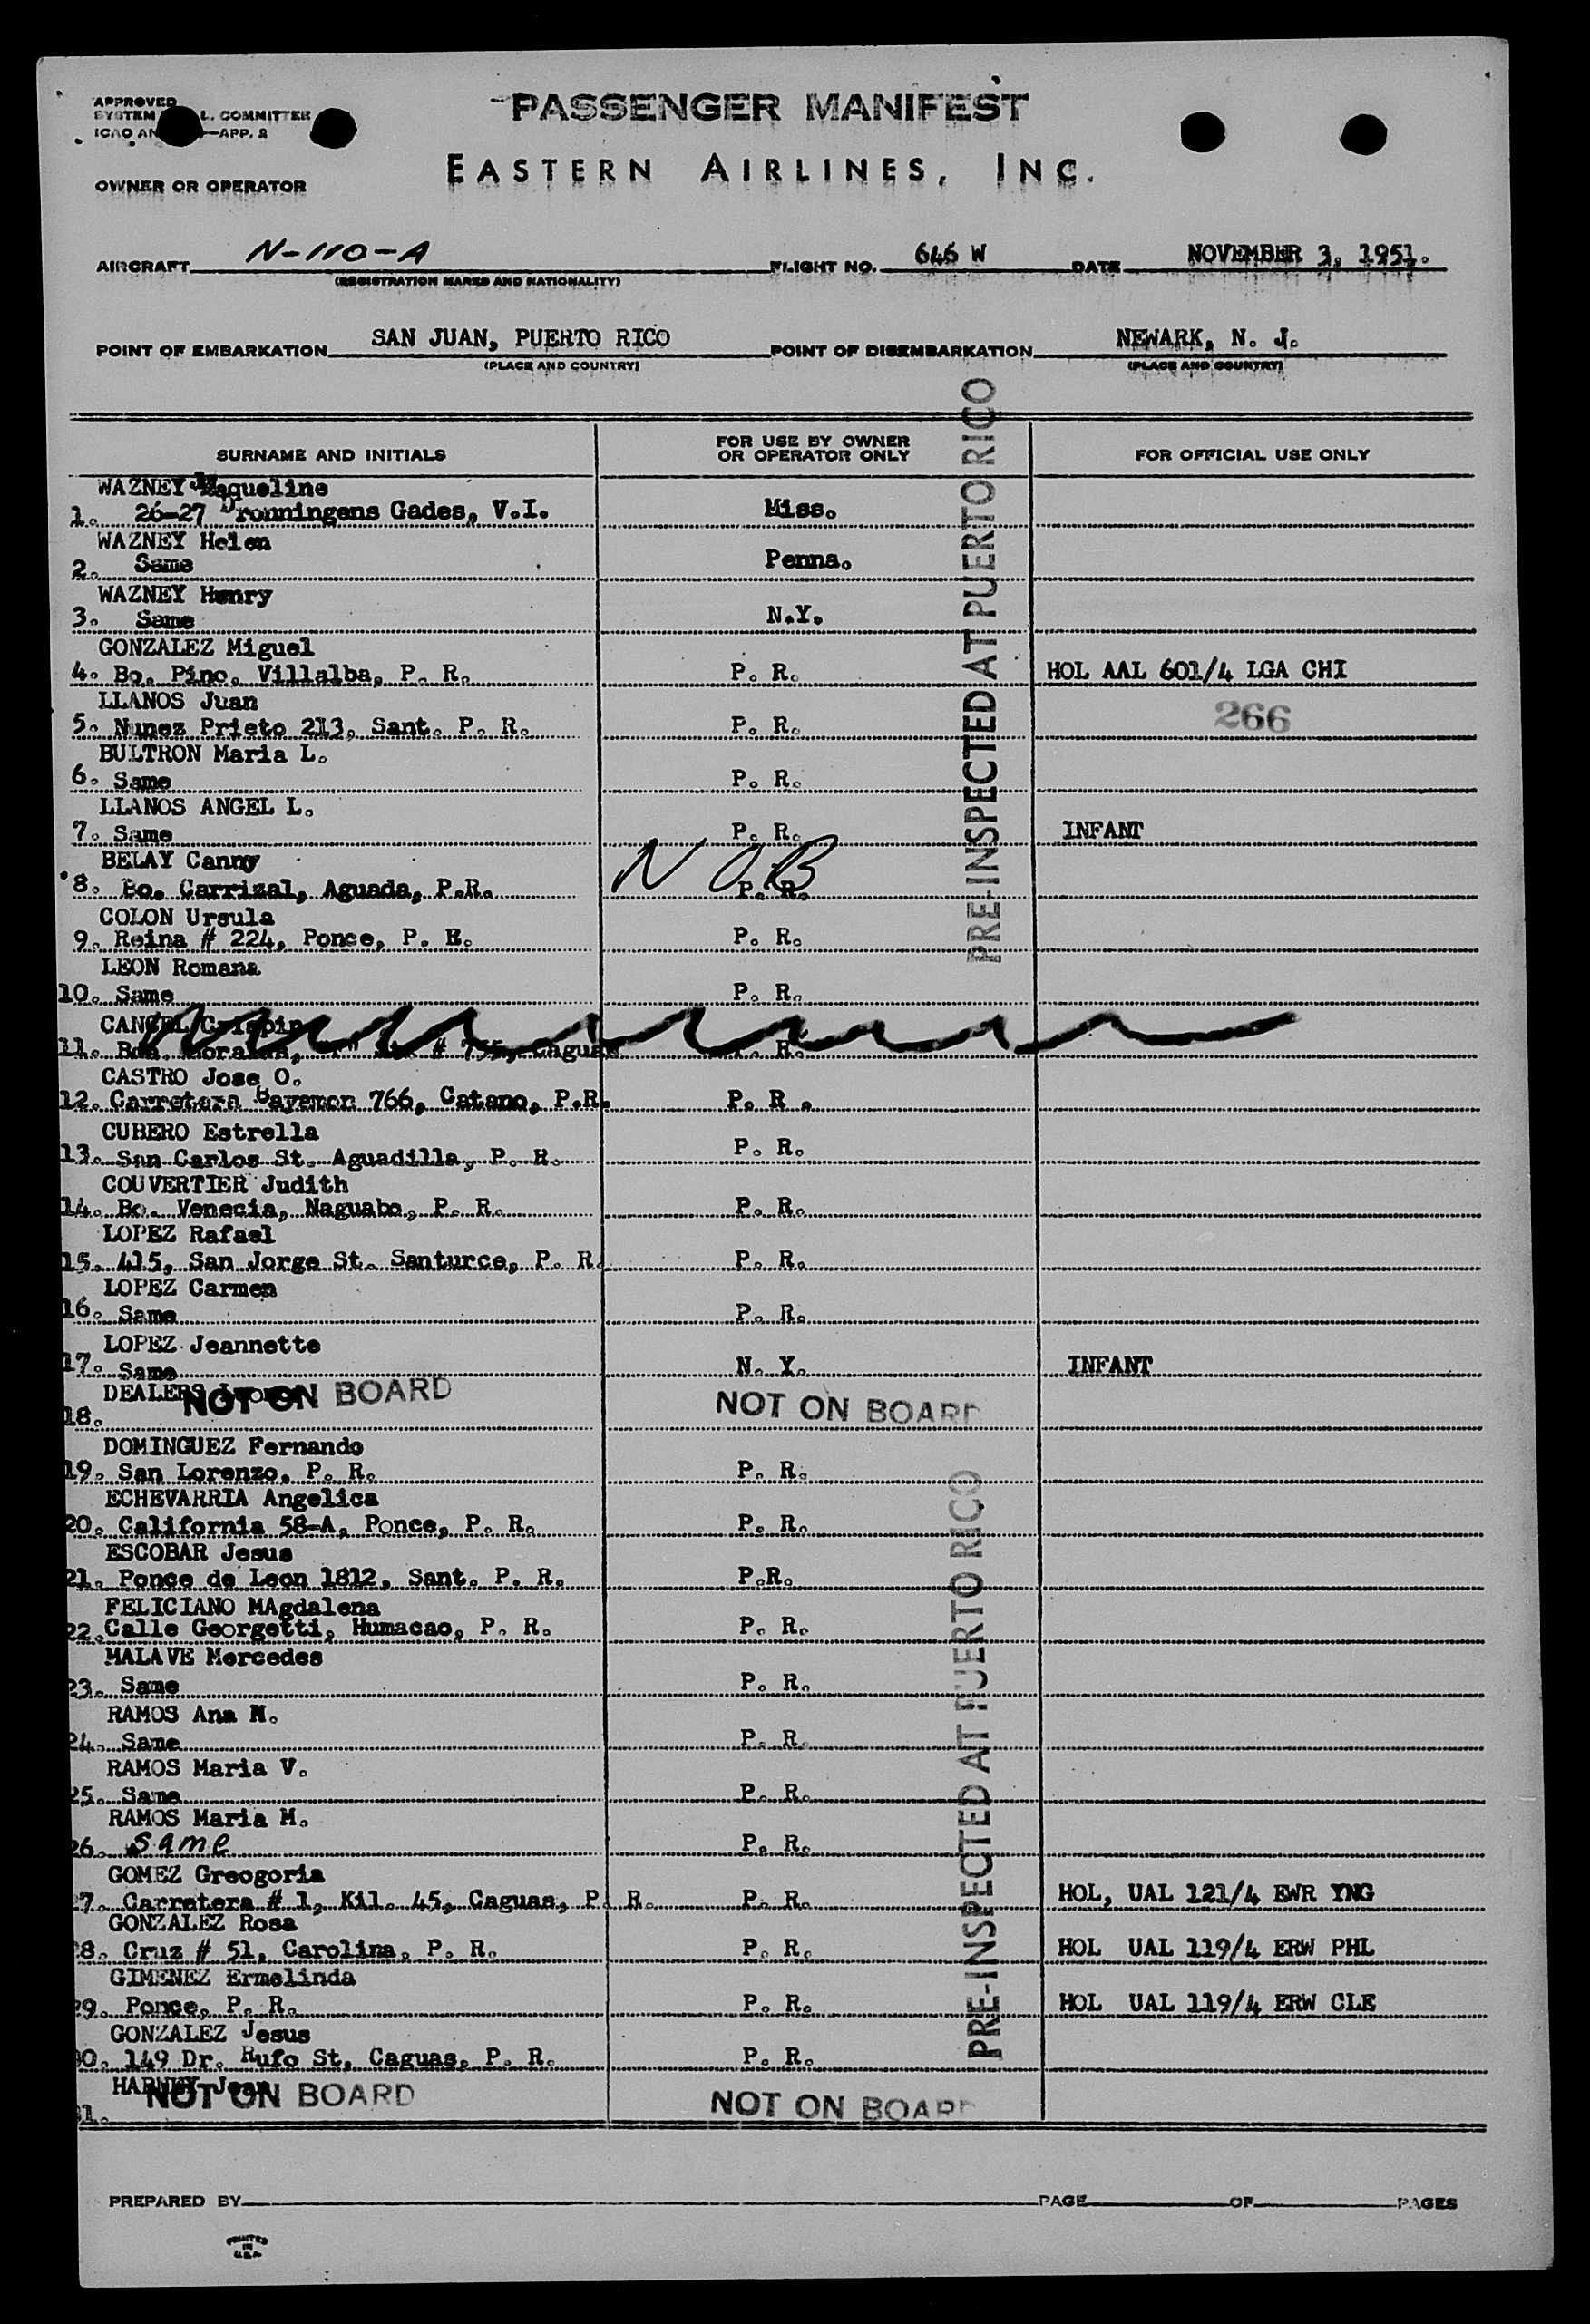 APPROVED
SYSTEM L. COMMITTEE
ICAO AN —APP. 2
PASSENGER MANIFEST
OWNER OR OPERATOR
EASTERN AIRLINES, INC.
AIRCRAFT N-110-A FLIGHT NO. 646 W DATE NOVEMBER 3, 1951.
(REGISTRATION MARKS AND NATIONALITY)
POINT OF EMBARKATION SAN JUAN, PUERTO RICO POINT OF DISEMBARKATION NEWARK, N. J.
(PLACE AND COUNTRY) (PLACE AND COUNTRY)
SURNAME AND INITIALS FOR USE BY OWNER OR OPERATOR ONLY FOR OFFICIAL USE ONLY
WAZNEY Jaqueline
1. 26-27 Dronningens Gades, V.I. Miss.
WAZNEY Helen
2. Same Penna.
WAZNEY Henry
3. Same N.Y.
GONZALEZ Miguel
4. Bo. Pino, Villalba, P. R. P. R. HOL AAL 601/4 LGA CHI
LLANOS Juan
5. Nunez Prieto 213, Sant. P. R. P. R. 266
BULTRON Maria L.
6. Same P. R.
LLANOS ANGEL L.
7. Same P. R. INFANT
BELAY Canny
8. Bo. Carrizal, Aguada, P.R. P. R. NOB
COLON Ursula
9. Reina # 224, Ponce, P. R. P. R.
LEON Romana
10. Same P. R.
CANCEL Crispin
11. # Caguas P. R.
CASTRO Jose O.
12. Carretera Bayamon 766, Catano, P.R. P. R .
CUBERO Estrella
13. San Carlos St. Aguadilla, P. R. P. R.
COUVERTIER Judith
14. Bo. Venecia, Naguabo, P. R. P. R.
LOPEZ Rafael
15. 415, San Jorge St. Santurce, P. R. P. R.
LOPEZ Carmen
16. Same P. R.
LOPEZ Jeannette
17. Same N. Y. INFANT
DEALERS NOT ON BOARD NOT ON BOARD
18.
DOMINGUEZ Fernando
19. San Lorenzo, P. R. P. R.
ECHEVARRIA Angelica
20. California 58-A, Ponce, P. R. P. R.
ESCOBAR Jesus
21. Ponce de Leon 1812, Sant. P. R. P.R.
FELICIANO MAgdalena
22. Calle Georgetti, Humacao, P. R. P. R.
MALAVE Mercedes
23. Same P. R.
RAMOS Ana N.
24. Same P. R.
RAMOS Maria V.
25. Same P. R.
RAMOS Maria M.
26. Same P. R.
GOMEZ Greogoria
27. Carretera # 1, Kil. 45, Caguas, P. R. P. R. HOL, UAL 121/4 EWR YNG
GONZALEZ Rosa
28. Cruz # 51, Carolina, P. R. P. R. HOL UAL 119/4 ERW PHL
GIMENEZ Ermelinda
29. Ponce, P. R. P. R. HOL UAL 119/4 ERW CLE
GONZALEZ Jesus
30. 149 Dr. Rufo St. Caguas, P. R. P. R.
NOT ON BOARD NOT ON BOARD
31.
PRE-INSPECTED AT PUERTO RICO
PRE-INSPECTED AT PUERTO RICO
PREPARED BY PAGE OF PAGES
PRINTED
IN
U.S.A.